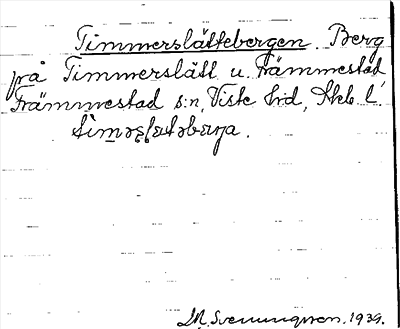 Timmerslättebergen. Berg
på Timmerslätt u. Främmestad
Främmestad s:n, Viste hd, Skb. l.
M. Svenungsson. 1939.